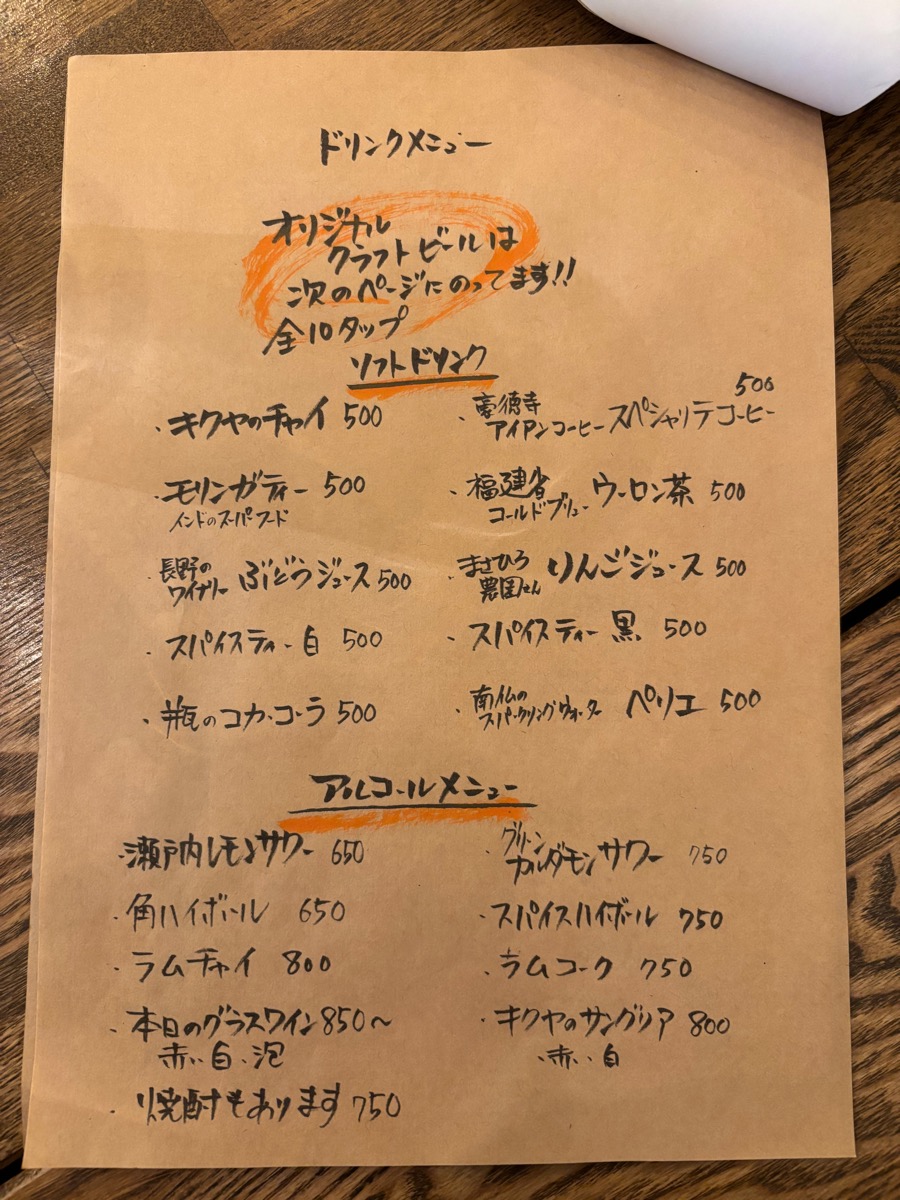 ドリンクメニュー
オリジナル
クラフトビールは
次のページにのってます!!
全10タップ
ソフトドリンク
・キクヤのチャイ 500
・豪徳寺アイアンコーヒー スペシャリテコーヒー 500
・モリンガティー 500
インドのスーパーフード
・福建省コールドブリュー ウーロン茶 500
・長野のワイナリー ぶどうジュース 500
・まさひろ農園さん りんごジュース 500
・スパイスティー白 500
・スパイスティー黒 500
・瓶のコカ・コーラ 500
・南仏のスパークリングウォーター ペリエ 500
アルコールメニュー
・瀬戸内レモンサワー 650
・グリーンカルダモンサワー 750
・角ハイボール 650
・スパイスハイボール 750
・ラムチャイ 800
・ラムコーク 750
・本日のグラスワイン 850〜
赤・白・泡
・キクヤのサングリア 800
・赤・白
・焼酎もあります 750